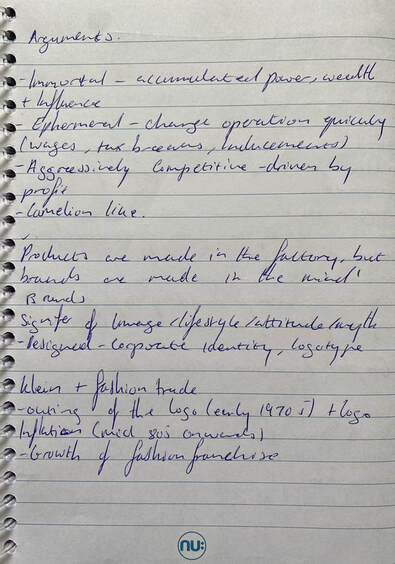 Arguments.
- Immortal - accumulated power, wealth
+ Influence
- Ephemeral - change operation quickly
(wages, tax breaks, inducements)
- Aggressively competitive - driven by
profit
- Camelion like.
'Products are made in the factory, but
brands are made in the mind'
Brands
Signifer of Image/lifestyle/attitude/myth
- Designed - corporate identity, logotype
Klein + fashion trade
- owning of the logo (early 1970s) + logo
Inflation (mid 80s onwards)
- Growth of fashion franchise
nu: